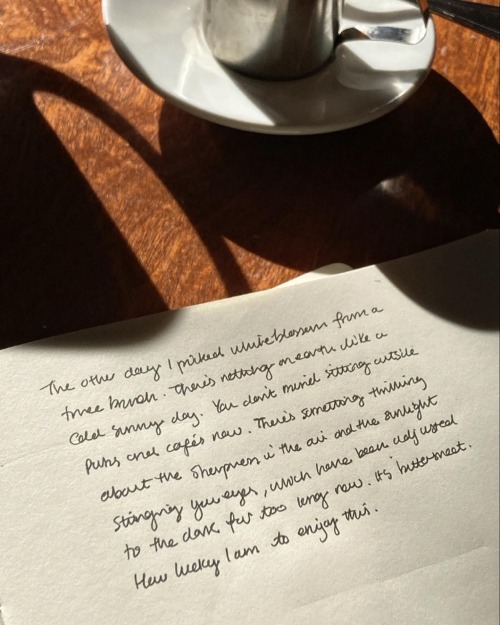 The other day I picked white blossom from a
tree branch. There's nothing on earth like a
cold sunny day. You don't mind sitting outside
Pubs and cafés now. There's something thrilling
about the sharpness in the air and the sunlight
stinging your eyes, which have been adjusted
to the dark for too long now. It's bittersweet.
How lucky I am to enjoy this.